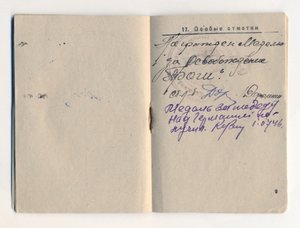 17. Особые отметки
Награжден Медалью
за Освобождение
Праги".
Медаль за победу
над Германией по-
лучил.
9